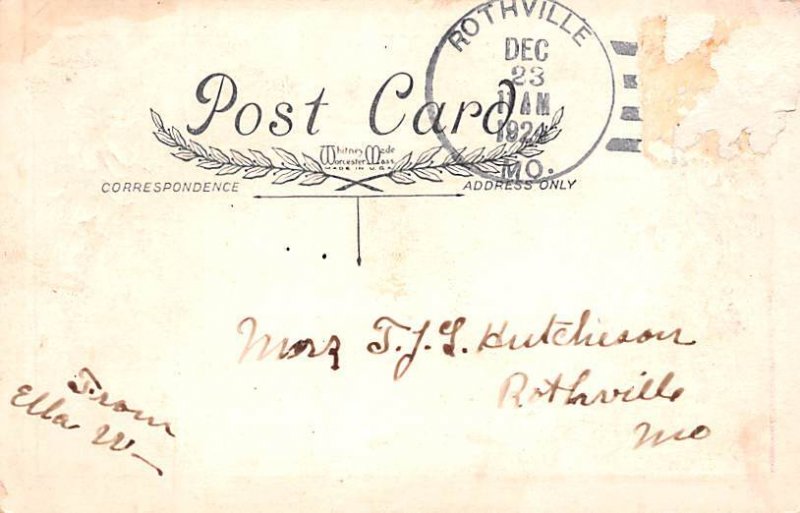 ROTHVILLE
DEC
23
11 AM
1924
MO.
Post Card
Whitney Made
Worcester, Mass.
MADE IN U.S.A.
CORRESPONDENCE
ADDRESS ONLY
Hutcheson
Rothville
Mo
From
Ella W—